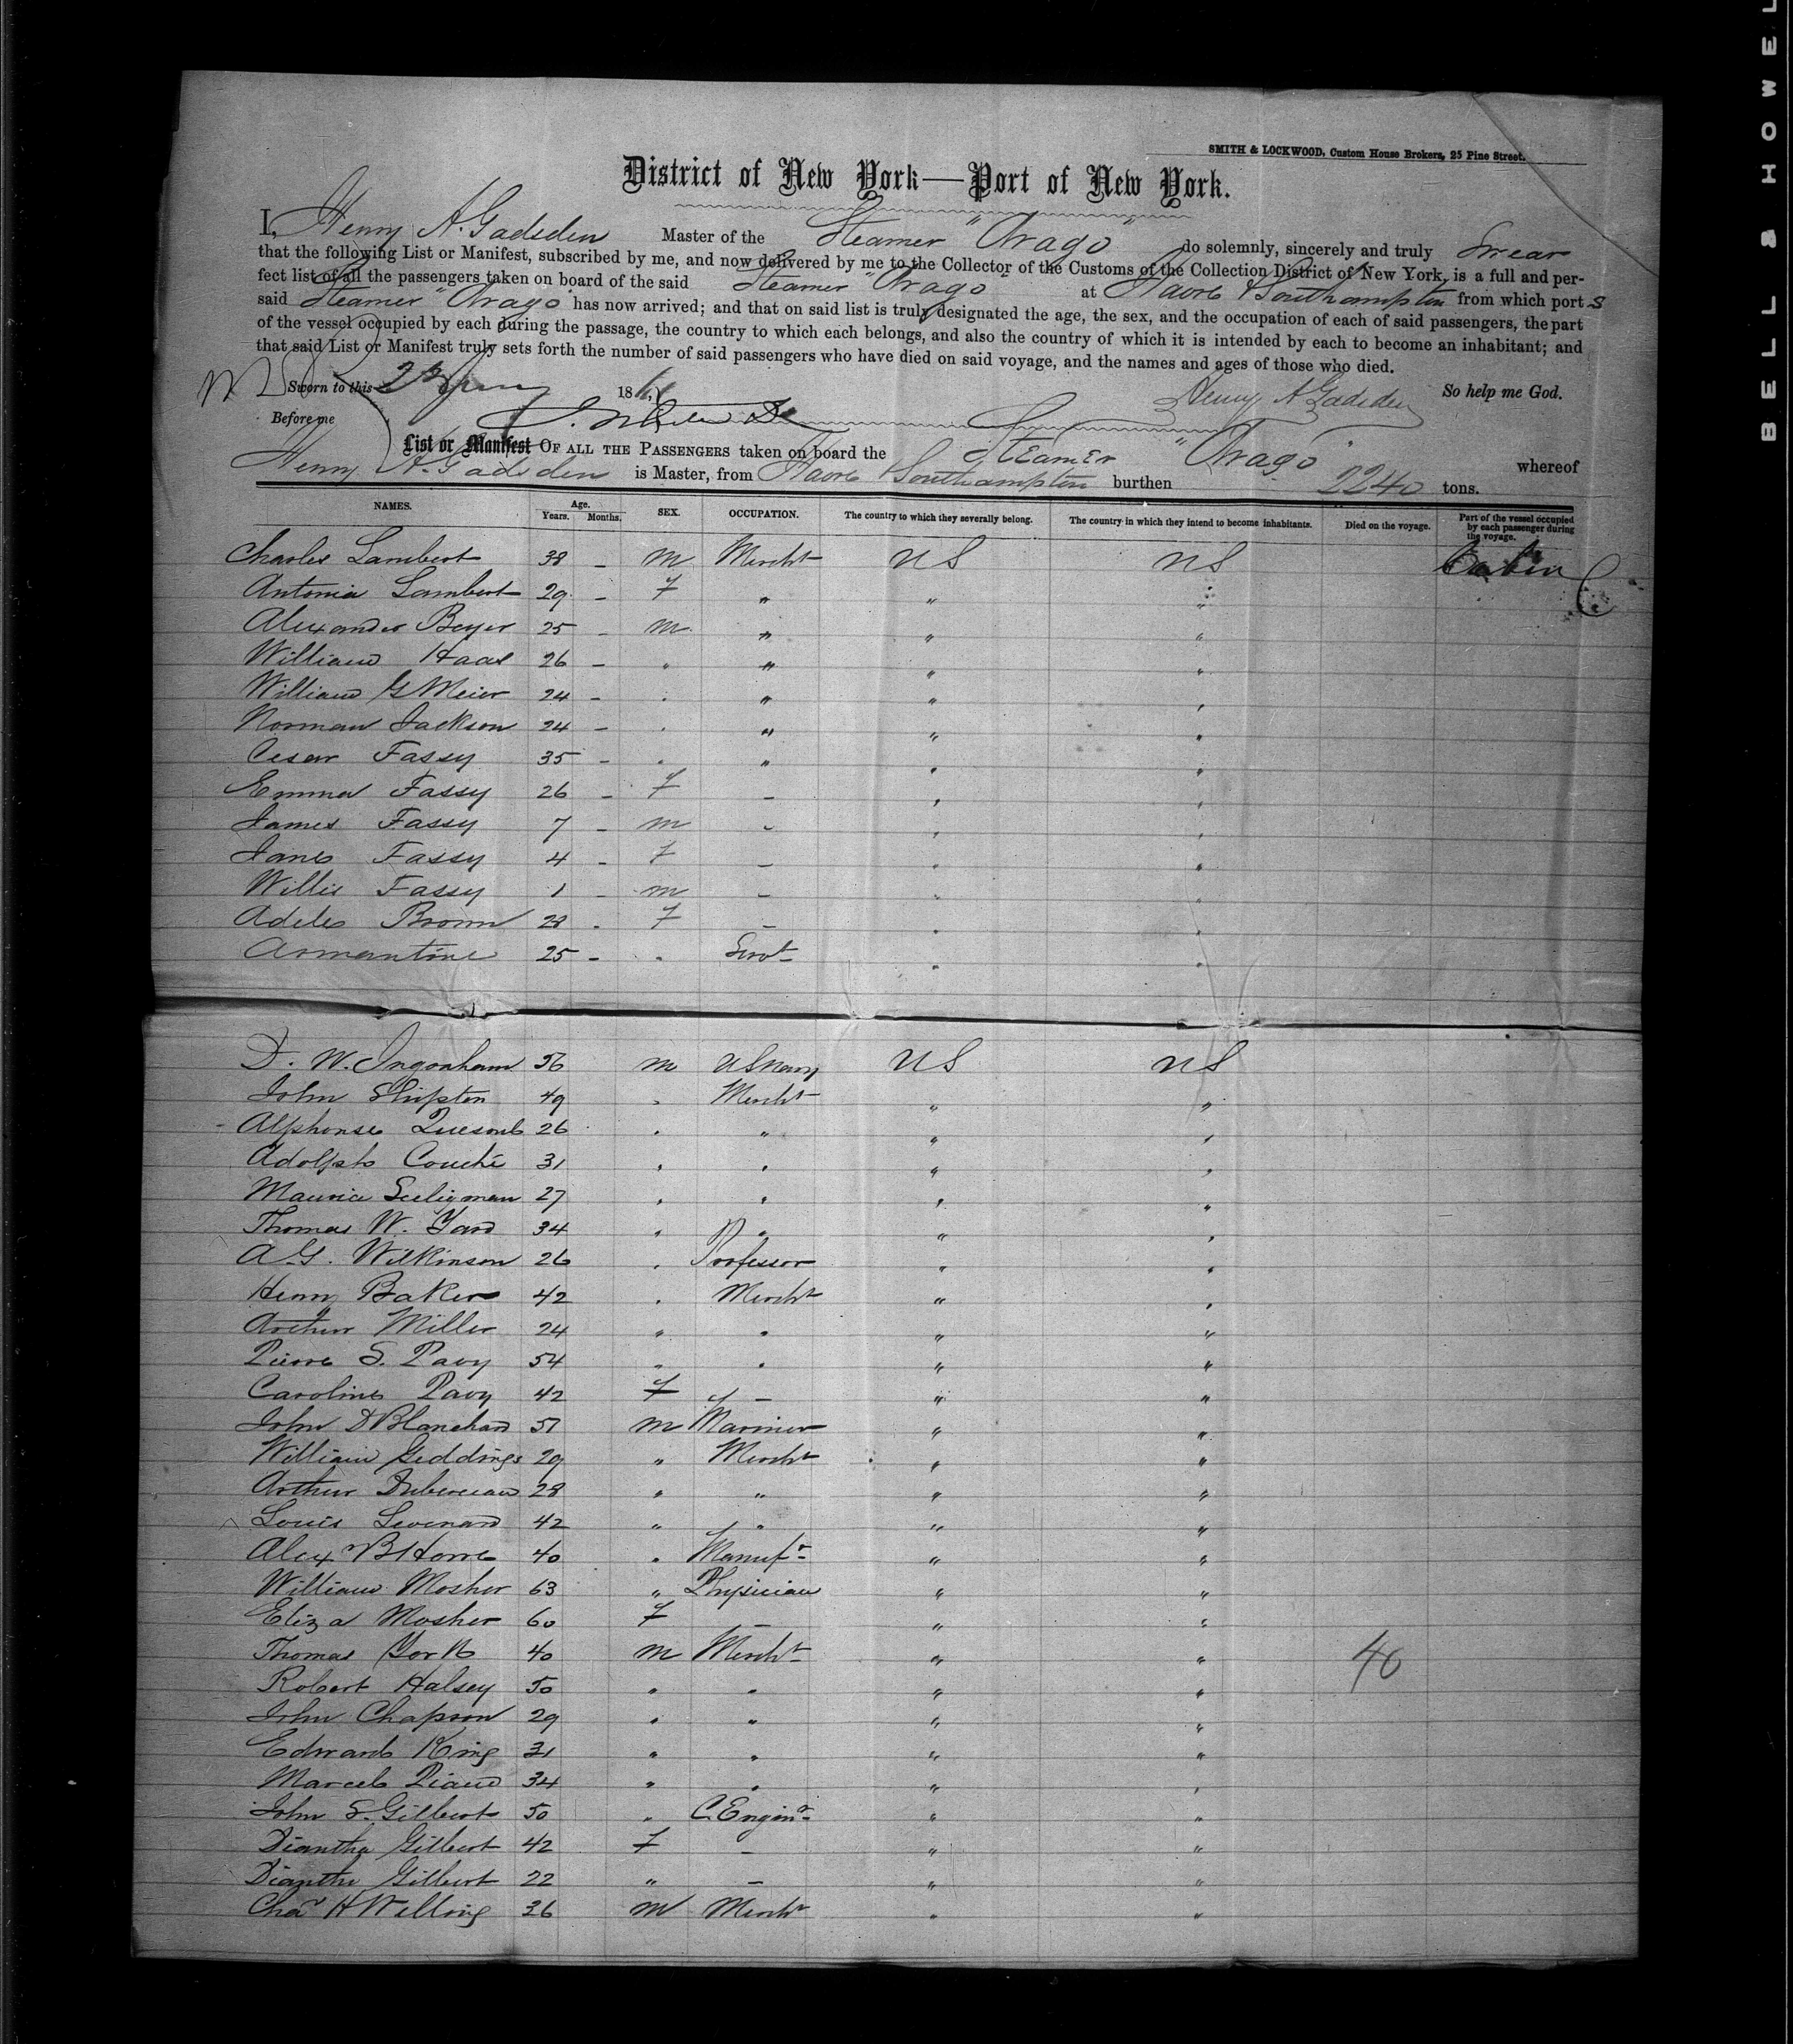 SMITH & LOCKWOOD, Custom House Brokers, 25 Pine Street.
District of New York—Port of New York.
I, Henry A. Gadsden Master of the Steamer "Arago" do solemnly, sincerely and truly Swear
that the following List or Manifest, subscribed by me, and now delivered by me to the Collector of the Customs of the Collection District of New York, is a full and per-
fect list of all the passengers taken on board of the said Steamer "Arago" at Havre & Southampton from which port s
said Steamer "Arago" has now arrived; and that on said list is truly designated the age, the sex, and the occupation of each of said passengers, the part
of the vessel occupied by each during the passage, the country to which each belongs, and also the country of which it is intended by each to become an inhabitant; and
that said List or Manifest truly sets forth the number of said passengers who have died on said voyage, and the names and ages of those who died.
Sworn to this 2d 1861 Henry A Gadsden So help me God.
Before me
List or Manifest OF ALL THE PASSENGERS taken on board the STEAMER "Arago" whereof
Henry A. Gadsden is Master, from Havre & Southampton burthen 2240 tons.
NAMES. Age. Years. Months. SEX. OCCUPATION. The country to which they severally belong. The country in which they intend to become inhabitants. Died on the voyage. Part of the vessel occupied by each passenger during the voyage.
Charles Lambert 38 - M Mercht US US Cabin
Antonia Lambert 29 - F " " "
Alexander Beyer 25 - M " " "
William Haas 26 - " " " "
William G Meier 24 - " " " "
Norman Jackson 24 - " " " "
Cesar Fassy 35 - " " " "
Emma Fassy 26 - F - " "
James Fassy 7 - M - " "
Jane Fassy 4 - F - " "
Willie Fassy 1 - M - " "
Adele Brown 28 - F - " "
Armantine 25 - " Servt " "
D. N. Ingraham 56 M US Navy US US
John Shipton 49 " Mercht " "
Alphonse 26 " " " "
Adolph Couché 31 " " " "
Maurice Seeligman 27 " " " "
Thomas W. Yard 34 " " " "
A.G. Wilkinson 26 " Professor " "
Henry Baker 42 " Mercht " "
Arthur Miller 24 " " " "
Pierre S. Pavy 54 " " " "
Caroline Pavy 42 F - " "
John D Blanchard 51 M Mariner " "
William Geddings 29 " Mercht " "
Arthur 28 " " " "
Louis 42 " " " "
Alexr B Howe 40 " Manufr " "
William Mosher 63 " Physician " "
Eliza Mosher 60 F - " "
Thomas York 40 M Mercht " " 40
Robert Halsey 50 " " " "
John Chapson 29 " " " "
Edward King 31 " " " "
Marcel 34 " " " "
John S. Gilbert 50 " C. Enginr " "
Diantha Gilbert 42 F - " "
Dianthe Gilbert 22 " - " "
Chas H Welling 36 M Mercht " "
BELL & HOWEL